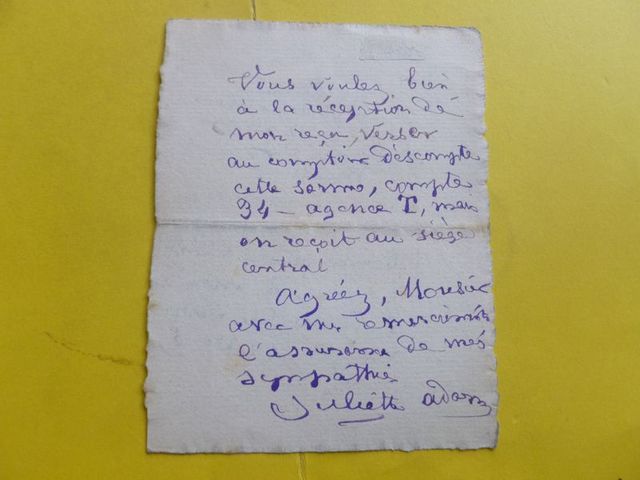 Vous voulez bien
à la réception de
mon reçu, verser
au comptoir d'escompte
cette somme, compte
94 - agence T, mais
on reçoit au siège
central
Agréez, Monsieur
avec mes remerciements
l'assurance de mes
sympathies
Juliette Adam